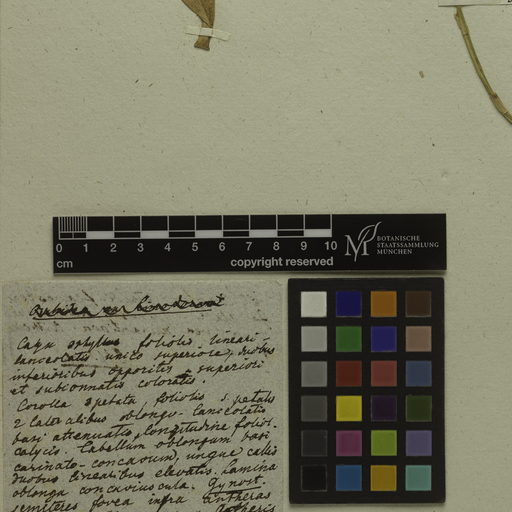 0 1 2 3 4 5 6 7 8 9 10
cm
copyright reserved
M
BOTANISCHE
STAATSSAMMLUNG
MÜNCHEN
foliolis lineari
lanceolatis unico superiore, duobus
inferioribus oppositis superiori
et subionnatis coloratis.
Corolla 3petata foliolis s. petalis
2 lateralibus oblongo-lanceolatis
basi attenuatis, longitudine foliol.
calycis. Labellum oblongum basi
carinato-concavum, unque callis
duobus linearibus elevatis. Lamina
oblonga concaviuscula. Gynost.
semiteres fovea infra antheras